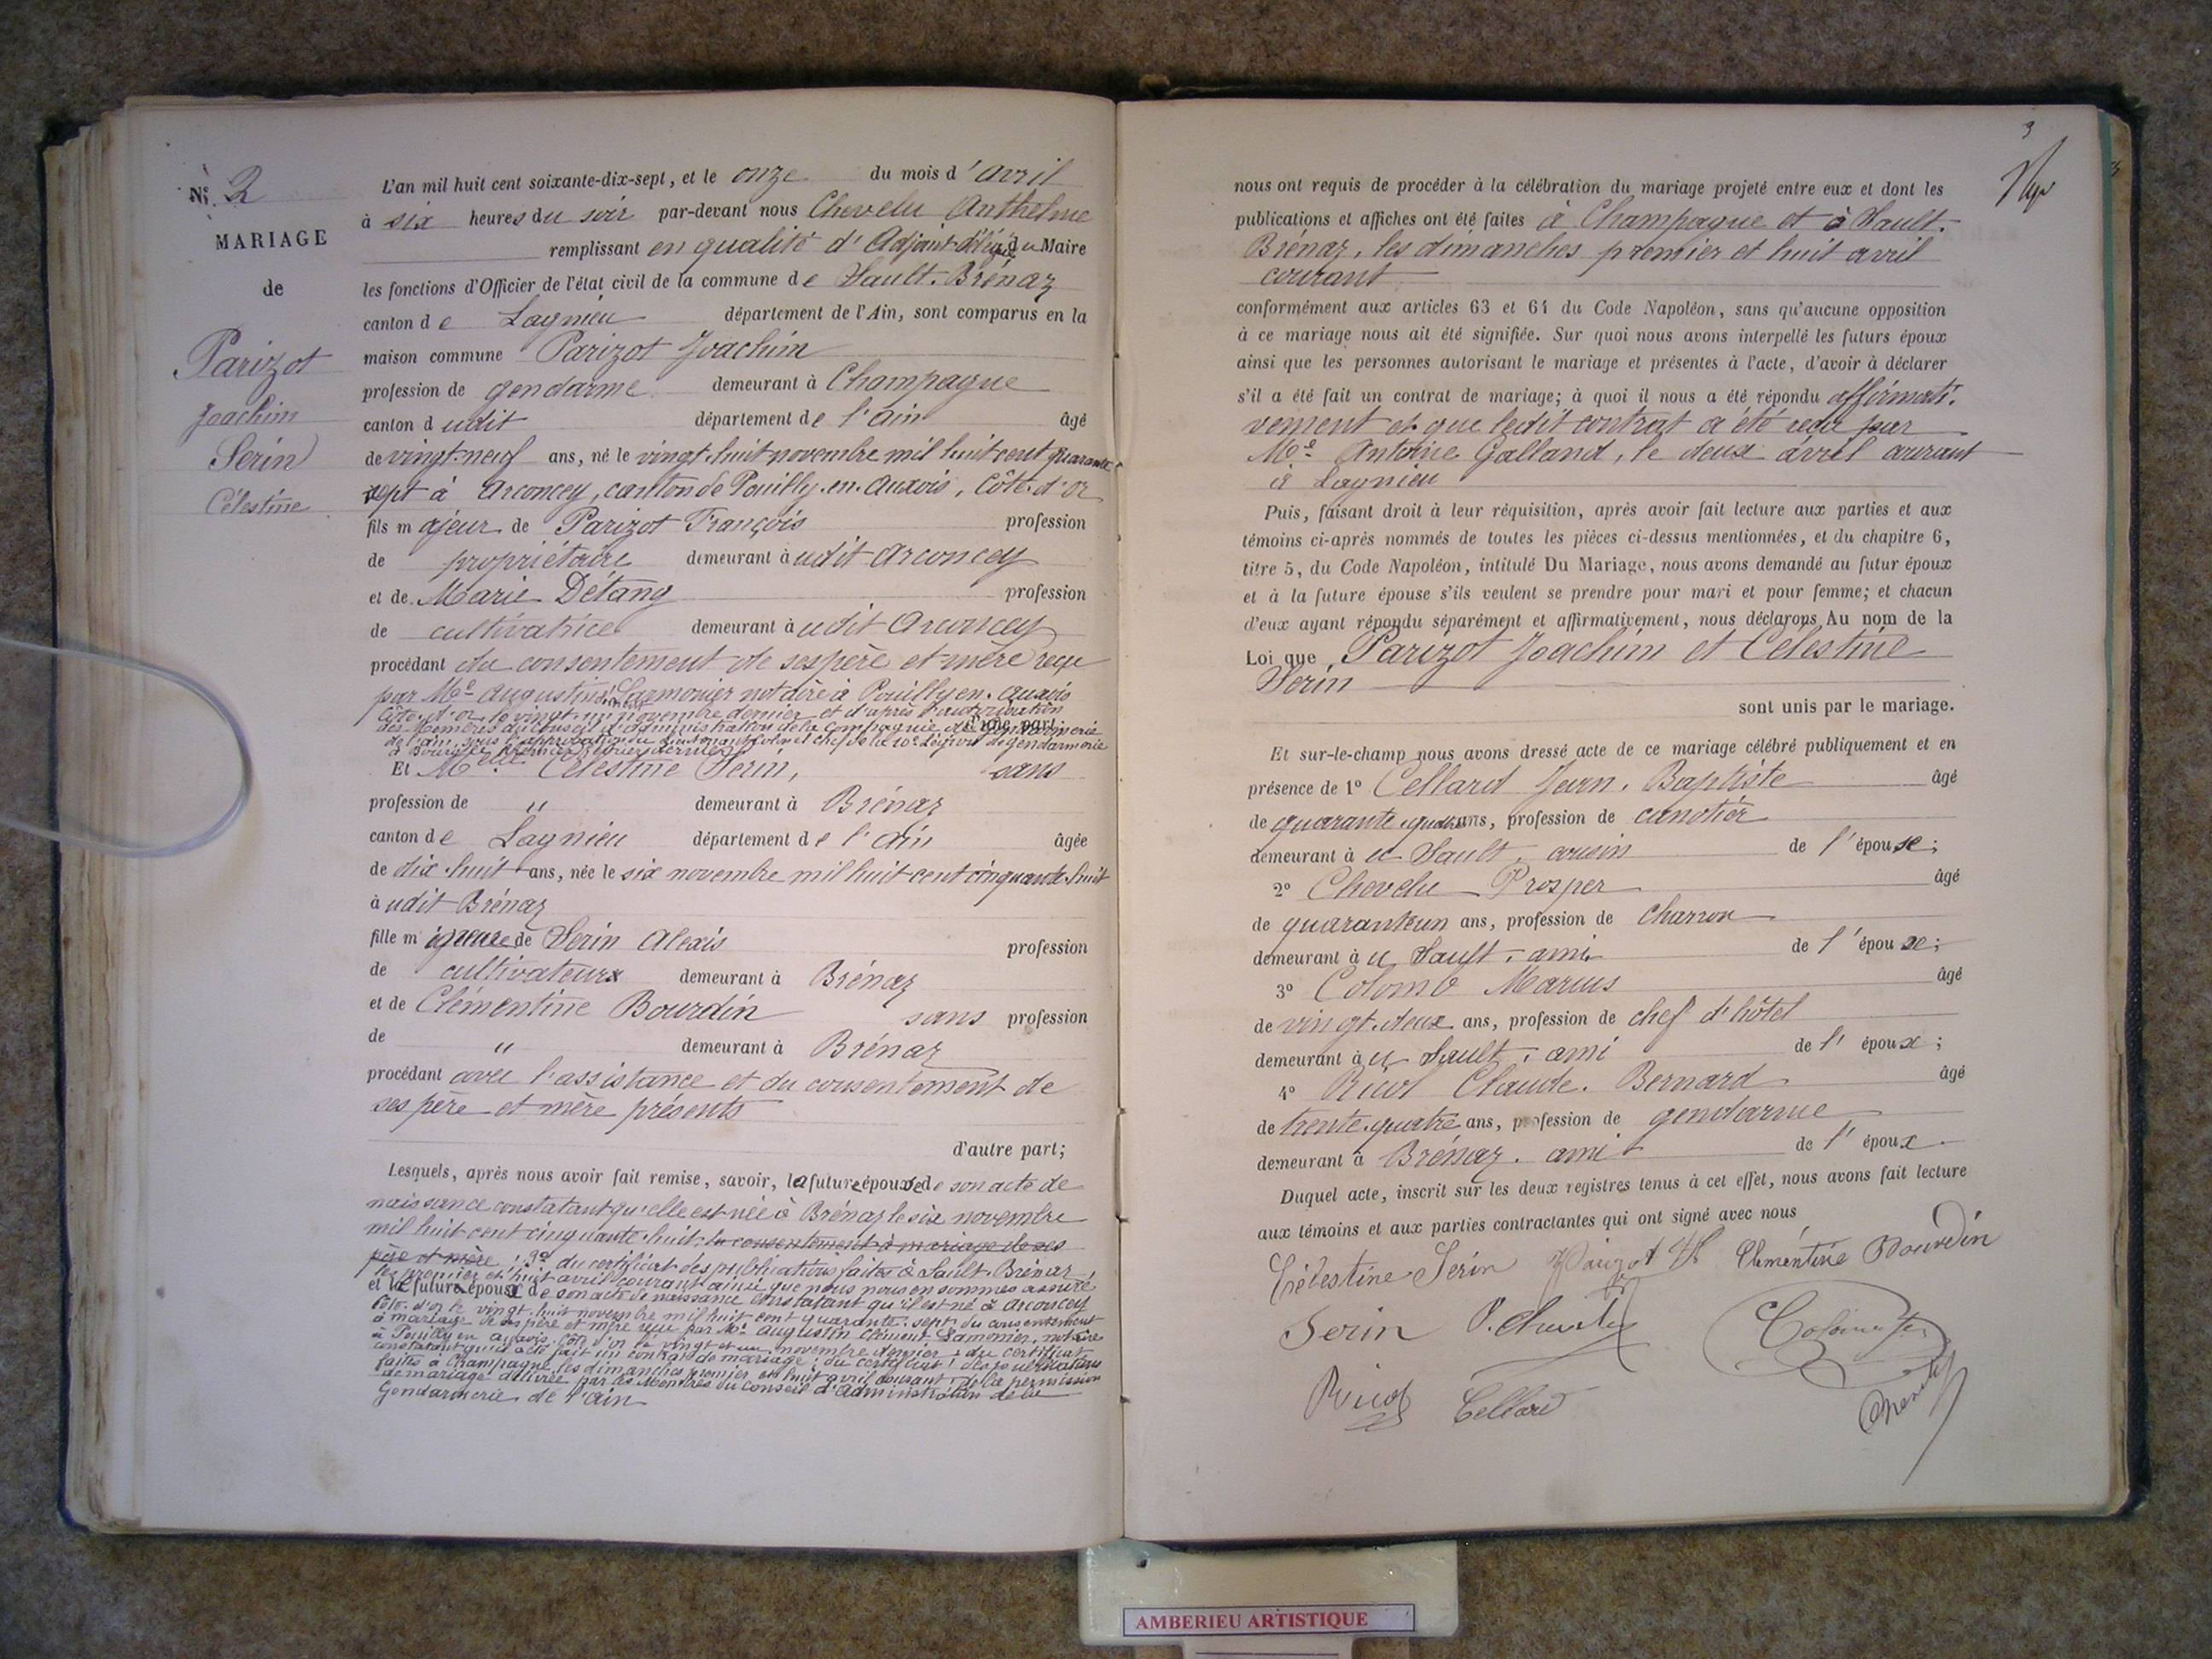 N° 2
MARIAGE
de
Parizot
Joachim
Serin
Célestine
L'an mil huit cent soixante-dix-sept, et le onze du mois d'avril
à six heures du soir par-devant nous Chevelu Anthelme
remplissant en qualité d'Adjoint délégué du Maire
les fonctions d'Officier de l'état civil de la commune de Sault-Brénaz
canton de Lagnieu département de l'Ain, sont comparus en la
maison commune Parizot Joachim
profession de gendarme demeurant à Champagne
canton dudit département de l'ain âgé
de vingt-neuf ans, né le vingt-huit novembre mil huit cent quarante
sept à Arconcey, canton de Pouilly-en-Auxois, Côte-d'Or
fils majeur de Parizot François profession
de propriétaire demeurant à udit Arconcey
et de Marie Détang profession
de cultivatrice demeurant à udit Arconcey
procédant du consentement de ses père et mère reçu
par Me Augustin Clément Lamonier notaire à Pouilly en Auxois
Côte-d'or le vingt-un novembre dernier et d'après l'autorisation
des Membres du Conseil d'administration de la Compagnie de Gendarmerie d'une part;
de l'ain, sous l'approbation du Lieutenant Colonel chef de la 10e Légion de gendarmerie
à Bourg le premier février dernier
Et Melle Célestine Serin, sans
profession de " demeurant à Brénaz
canton de Lagnieu département de l'ain âgée
de dix-huit ans, née le six novembre mil huit cent cinquante-huit
à udit Brénaz
fille mineure de Serin Alexis profession
de cultivateur demeurant à Brénaz
et de Clémentine Bourdin sans profession
de " demeurant à Brénaz
procédant avec l'assistance et du consentement de
ses père et mère présents
d'autre part;
Lesquels, après nous avoir fait remise, savoir, la future épouse de son acte de
naissance constatant qu'elle est née à Brénaz le six novembre
mil huit cent cinquante-huit; du consentement à mariage de ses
père et mère; 2° du certificat des publications faites à Sault-Brénaz,
les premier et huit avril courant ainsi que nous nous en sommes assuré
et le futur époux de son acte de naissance constatant qu'il est né à Arconcey
Côte-d'or le vingt-huit novembre mil huit cent quarante-sept; du consentement
à mariage de ses père et mère reçu par Me Augustin Clément Lamonier, notaire
à Pouilly en Auxois, Côte-d'or le vingt et un novembre dernier; du certificat
constatant qu'il a été fait un contrat de mariage; du certificat des publications
faites à Champagne, les dimanches premier et huit avril courant; de la permission
de mariage délivrée par les Membres du Conseil d'administration de la
Gendarmerie de l'ain
3
nous ont requis de procéder à la célébration du mariage projeté entre eux et dont les
publications et affiches ont été faites à Champagne et à Sault-
Brénaz, les dimanches premier et huit avril
courant
conformément aux articles 63 et 64 du Code Napoléon, sans qu'aucune opposition
à ce mariage nous ait été signifiée. Sur quoi nous avons interpellé les futurs époux
ainsi que les personnes autorisant le mariage et présentes à l'acte, d'avoir à déclarer
s'il a été fait un contrat de mariage; à quoi il nous a été répondu affirmati-
vement et que ledit contrat a été reçu par
Me Antoine Galland, le deux avril courant
à Lagnieu
Puis, faisant droit à leur réquisition, après avoir fait lecture aux parties et aux
témoins ci-après nommés de toutes les pièces ci-dessus mentionnées, et du chapitre 6,
titre 5, du Code Napoléon, intitulé Du Mariage, nous avons demandé au futur époux
et à la future épouse s'ils veulent se prendre pour mari et pour femme; et chacun
d'eux ayant répondu séparément et affirmativement, nous déclarons Au nom de la
Loi que Parizot Joachim et Célestine
Serin
sont unis par le mariage.
Et sur-le-champ nous avons dressé acte de ce mariage célébré publiquement et en
présence de 1° Cellard Jean-Baptiste âgé
de quarante-quatre ans, profession de canotier
demeurant à u Sault, cousin de l'épouse;
2° Chevelu Prosper âgé
de quarante un ans, profession de charron
demeurant à u Sault, ami de l'épouse;
3° Colomb Marius âgé
de vingt-deux ans, profession de chef d'hôtel
demeurant à u Sault, ami de l'époux;
4° Ricol Claude-Bernard âgé
de trente-quatre ans, profession de gendarme
demeurant à Brénaz, ami de l'époux
Duquel acte, inscrit sur les deux registres tenus à cet effet, nous avons fait lecture
aux témoins et aux parties contractantes qui ont signé avec nous
Célestine Serin Parizot Clémentine Bourdin
Serin P. Chevelu Colomb
Ricol Cellard Chevelu
AMBERIEU ARTISTIQUE